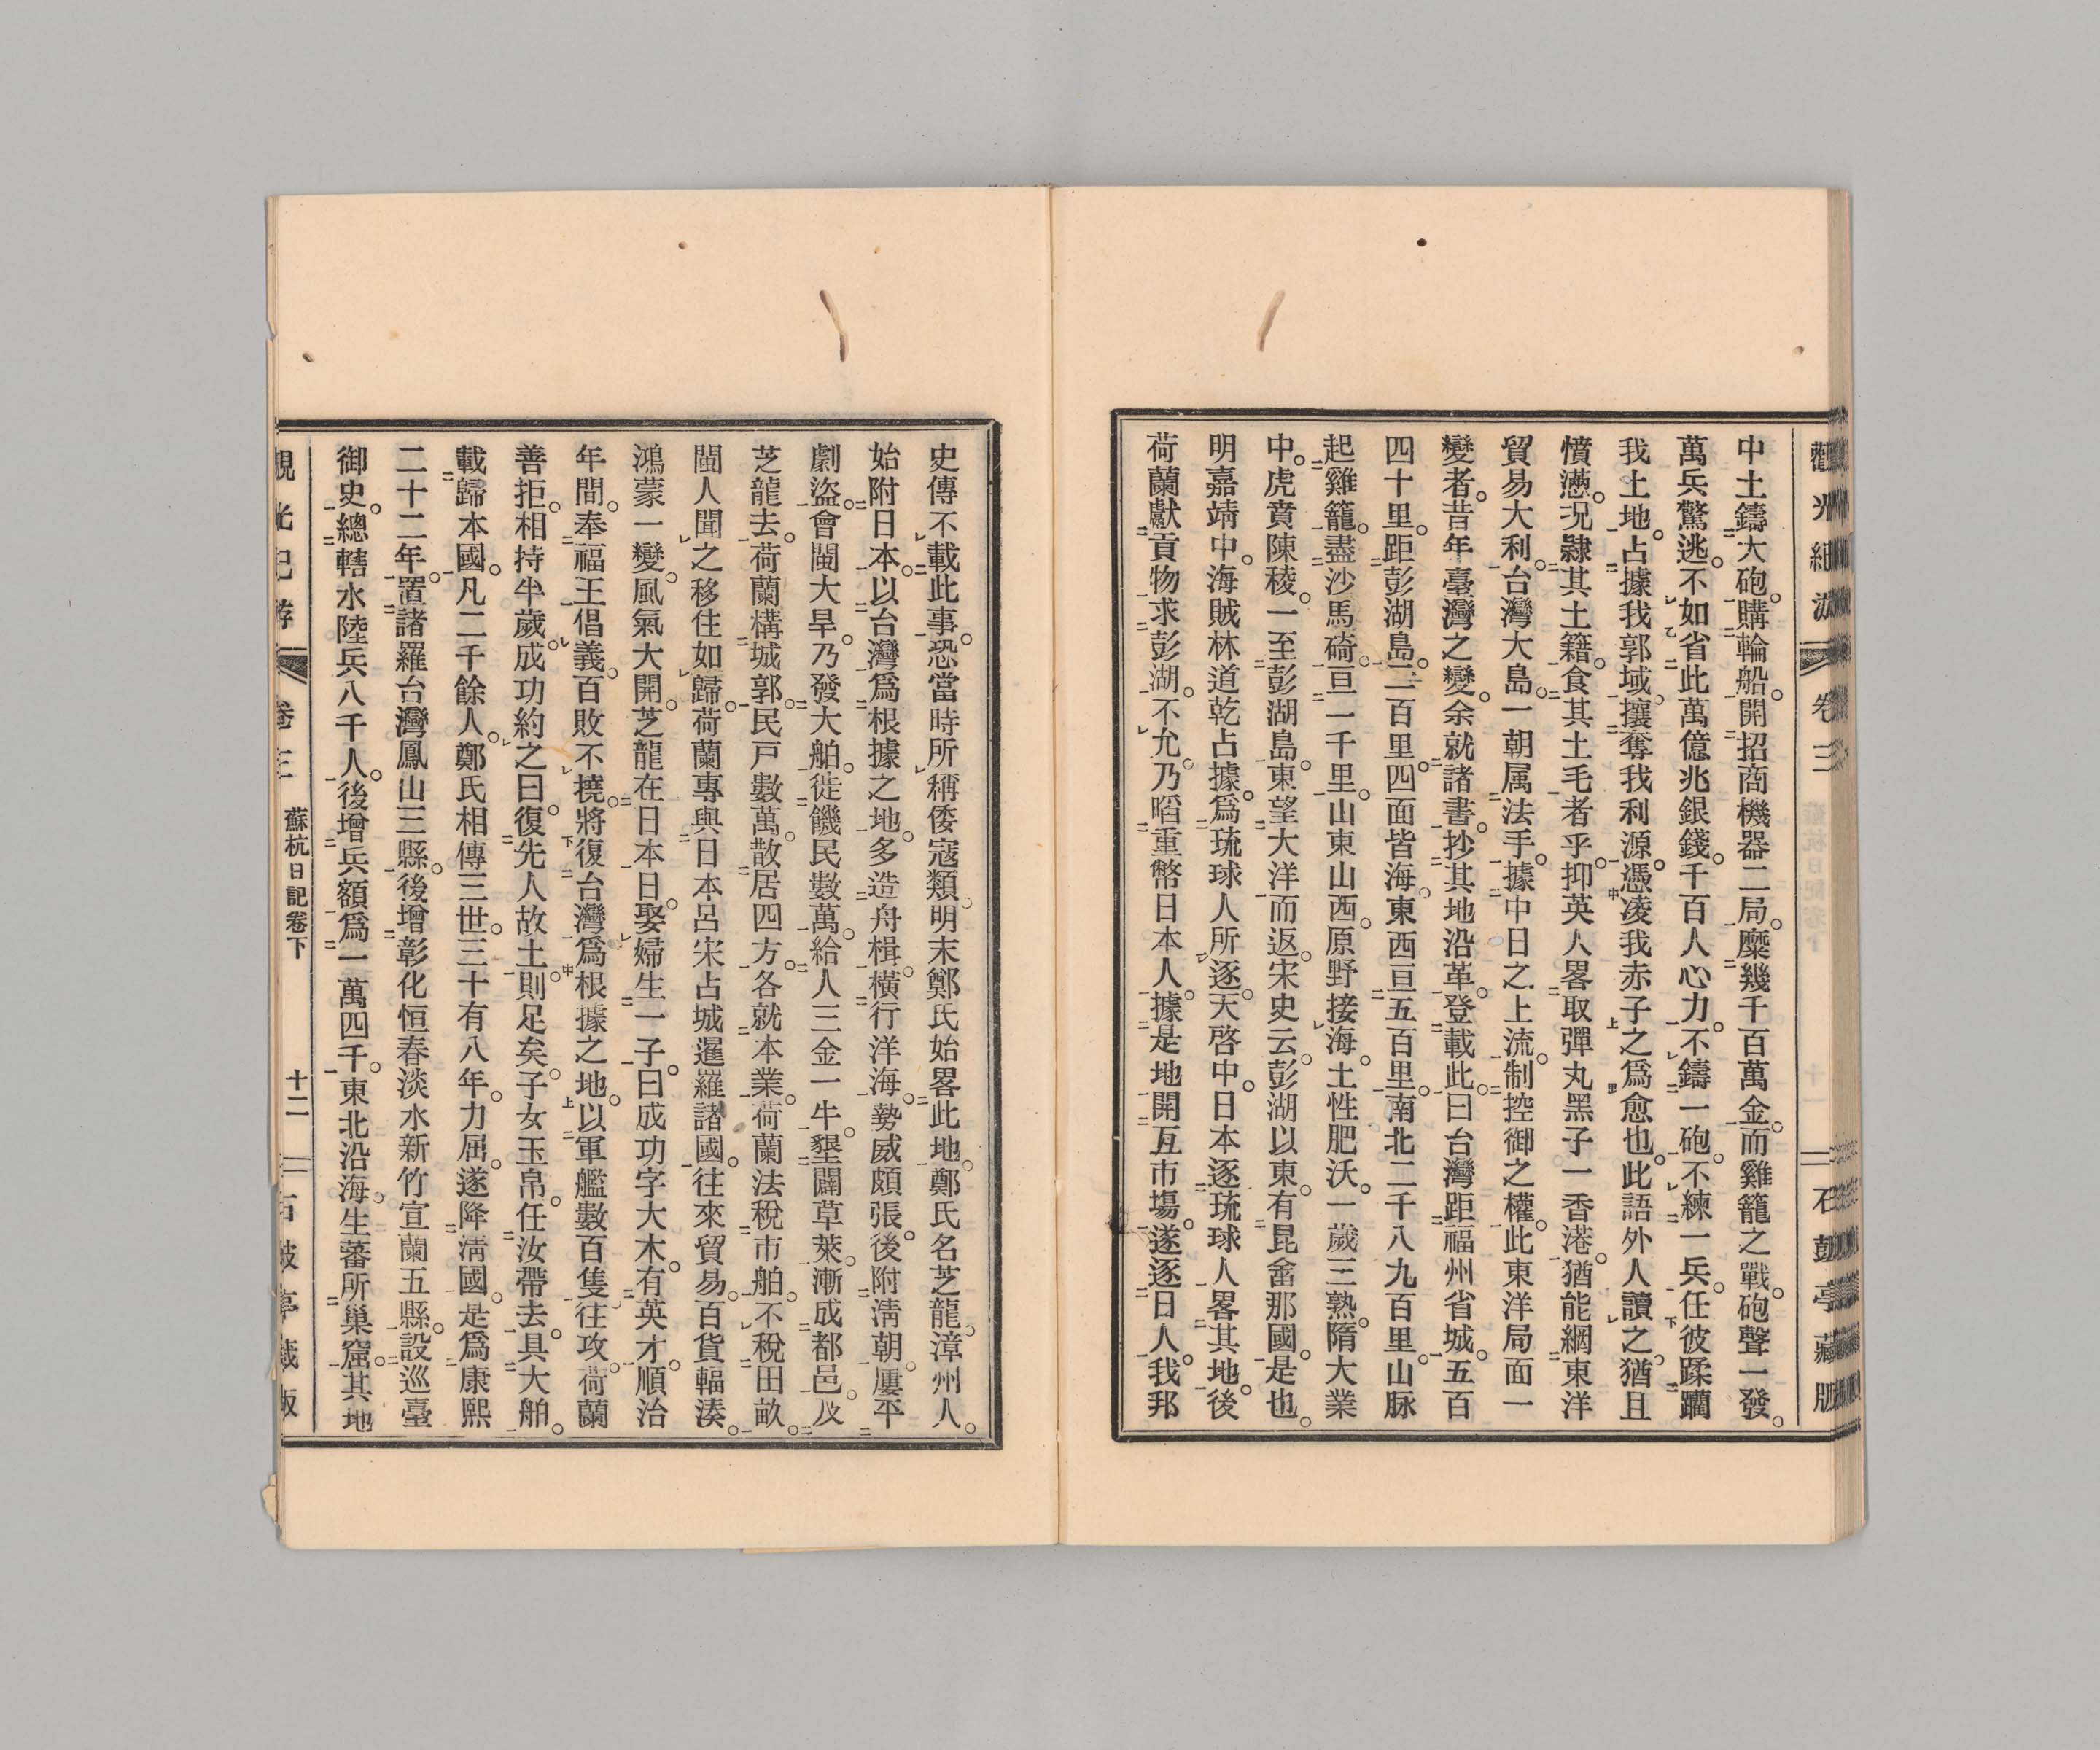 中土鑄大砲。購輪船。開招商機器二局。糜幾千百萬金。而雞籠之戰。砲聲一發。
萬兵驚逃。不如省此萬億兆銀錢。千百人心力。不鑄一砲。不練一兵。任彼蹂躪
我土地。占據我郭域。攘奪我利源。憑凌我赤子之爲愈也。此語外人讀之。猶且
憤懣。况隷其土籍。食其土毛者乎。抑英人畧取彈丸黑子一香港。猶能綱東洋
貿易大利。台灣大島。一朝属法手。據中日之上流。制控御之權。此東洋局面一
變者。昔年臺灣之變。余就諸書。抄其地沿革。登載此。曰台灣距福州省城。五百
四十里。距彭湖島。二百里。四面皆海。東西亘五百里。南北二千八九百里。山脉
起雞籠。盡沙馬碕。亘一千里。山東山西。原野接海。土性肥沃。一歲三熟。隋大業
中。虎賁陳稜。一至彭湖島。東望大洋而返。宋史云。彭湖以東。有昆舍那國。是也。
明嘉靖中。海賊林道乾占據。爲琉球人所逐。天啓中。日本逐琉球人畧其地。後
荷蘭獻貢物求彭湖。不允。乃啗重幣日本人。據是地開互市場。遂逐日人。我邦
史傳不載此事。恐當時所稱倭寇類。明末鄭氏始畧此地。鄭氏名芝龍。漳州人。
始附日本。以台灣爲根據之地。多造舟楫。橫行洋海。勢威頗張。後附淸朝。屢平
劇盜。會閩大旱。乃發大舶。徙饑民數萬。給人三金一牛。墾闢草萊。漸成都邑。及
芝龍去。荷蘭構城郭。民戸數萬。散居四方。各就本業。荷蘭法税市舶。不税田畝。
閩人聞之移住如歸。荷蘭專與日本呂宋占城暹羅諸國。往來貿易。百貨輻湊。
鴻蒙一變。風氣大開。芝龍在日本日。娶婦生一子。曰成功字大木。有英才。順治
年間。奉福王倡義。百敗不撓。將復台灣爲根據之地。以軍艦數百隻往攻。荷蘭
善拒。相持半歲。成功約之曰。復先人故土。則足矣。子女玉帛。任汝帶去。具大舶。
載歸本國。凡二千餘人。鄭氏相傳三世。三十有八年。力屈。遂降淸國。是爲康熙
二十二年。置諸羅台灣鳳山三縣。後增彰化恒春淡水新竹宣蘭五縣。設巡臺
御史。總轄水陸兵八千人。後增兵額爲一萬四千。東北沿海。生蕃所巢窟。其地
觀光紀游 卷三 蘇杭日記卷下 十二 石鼓亭藏版